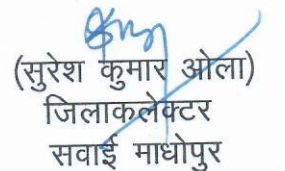 (सुरेश कुमार ओला)
जिलाकलेक्टर
सवाई माधोपुर